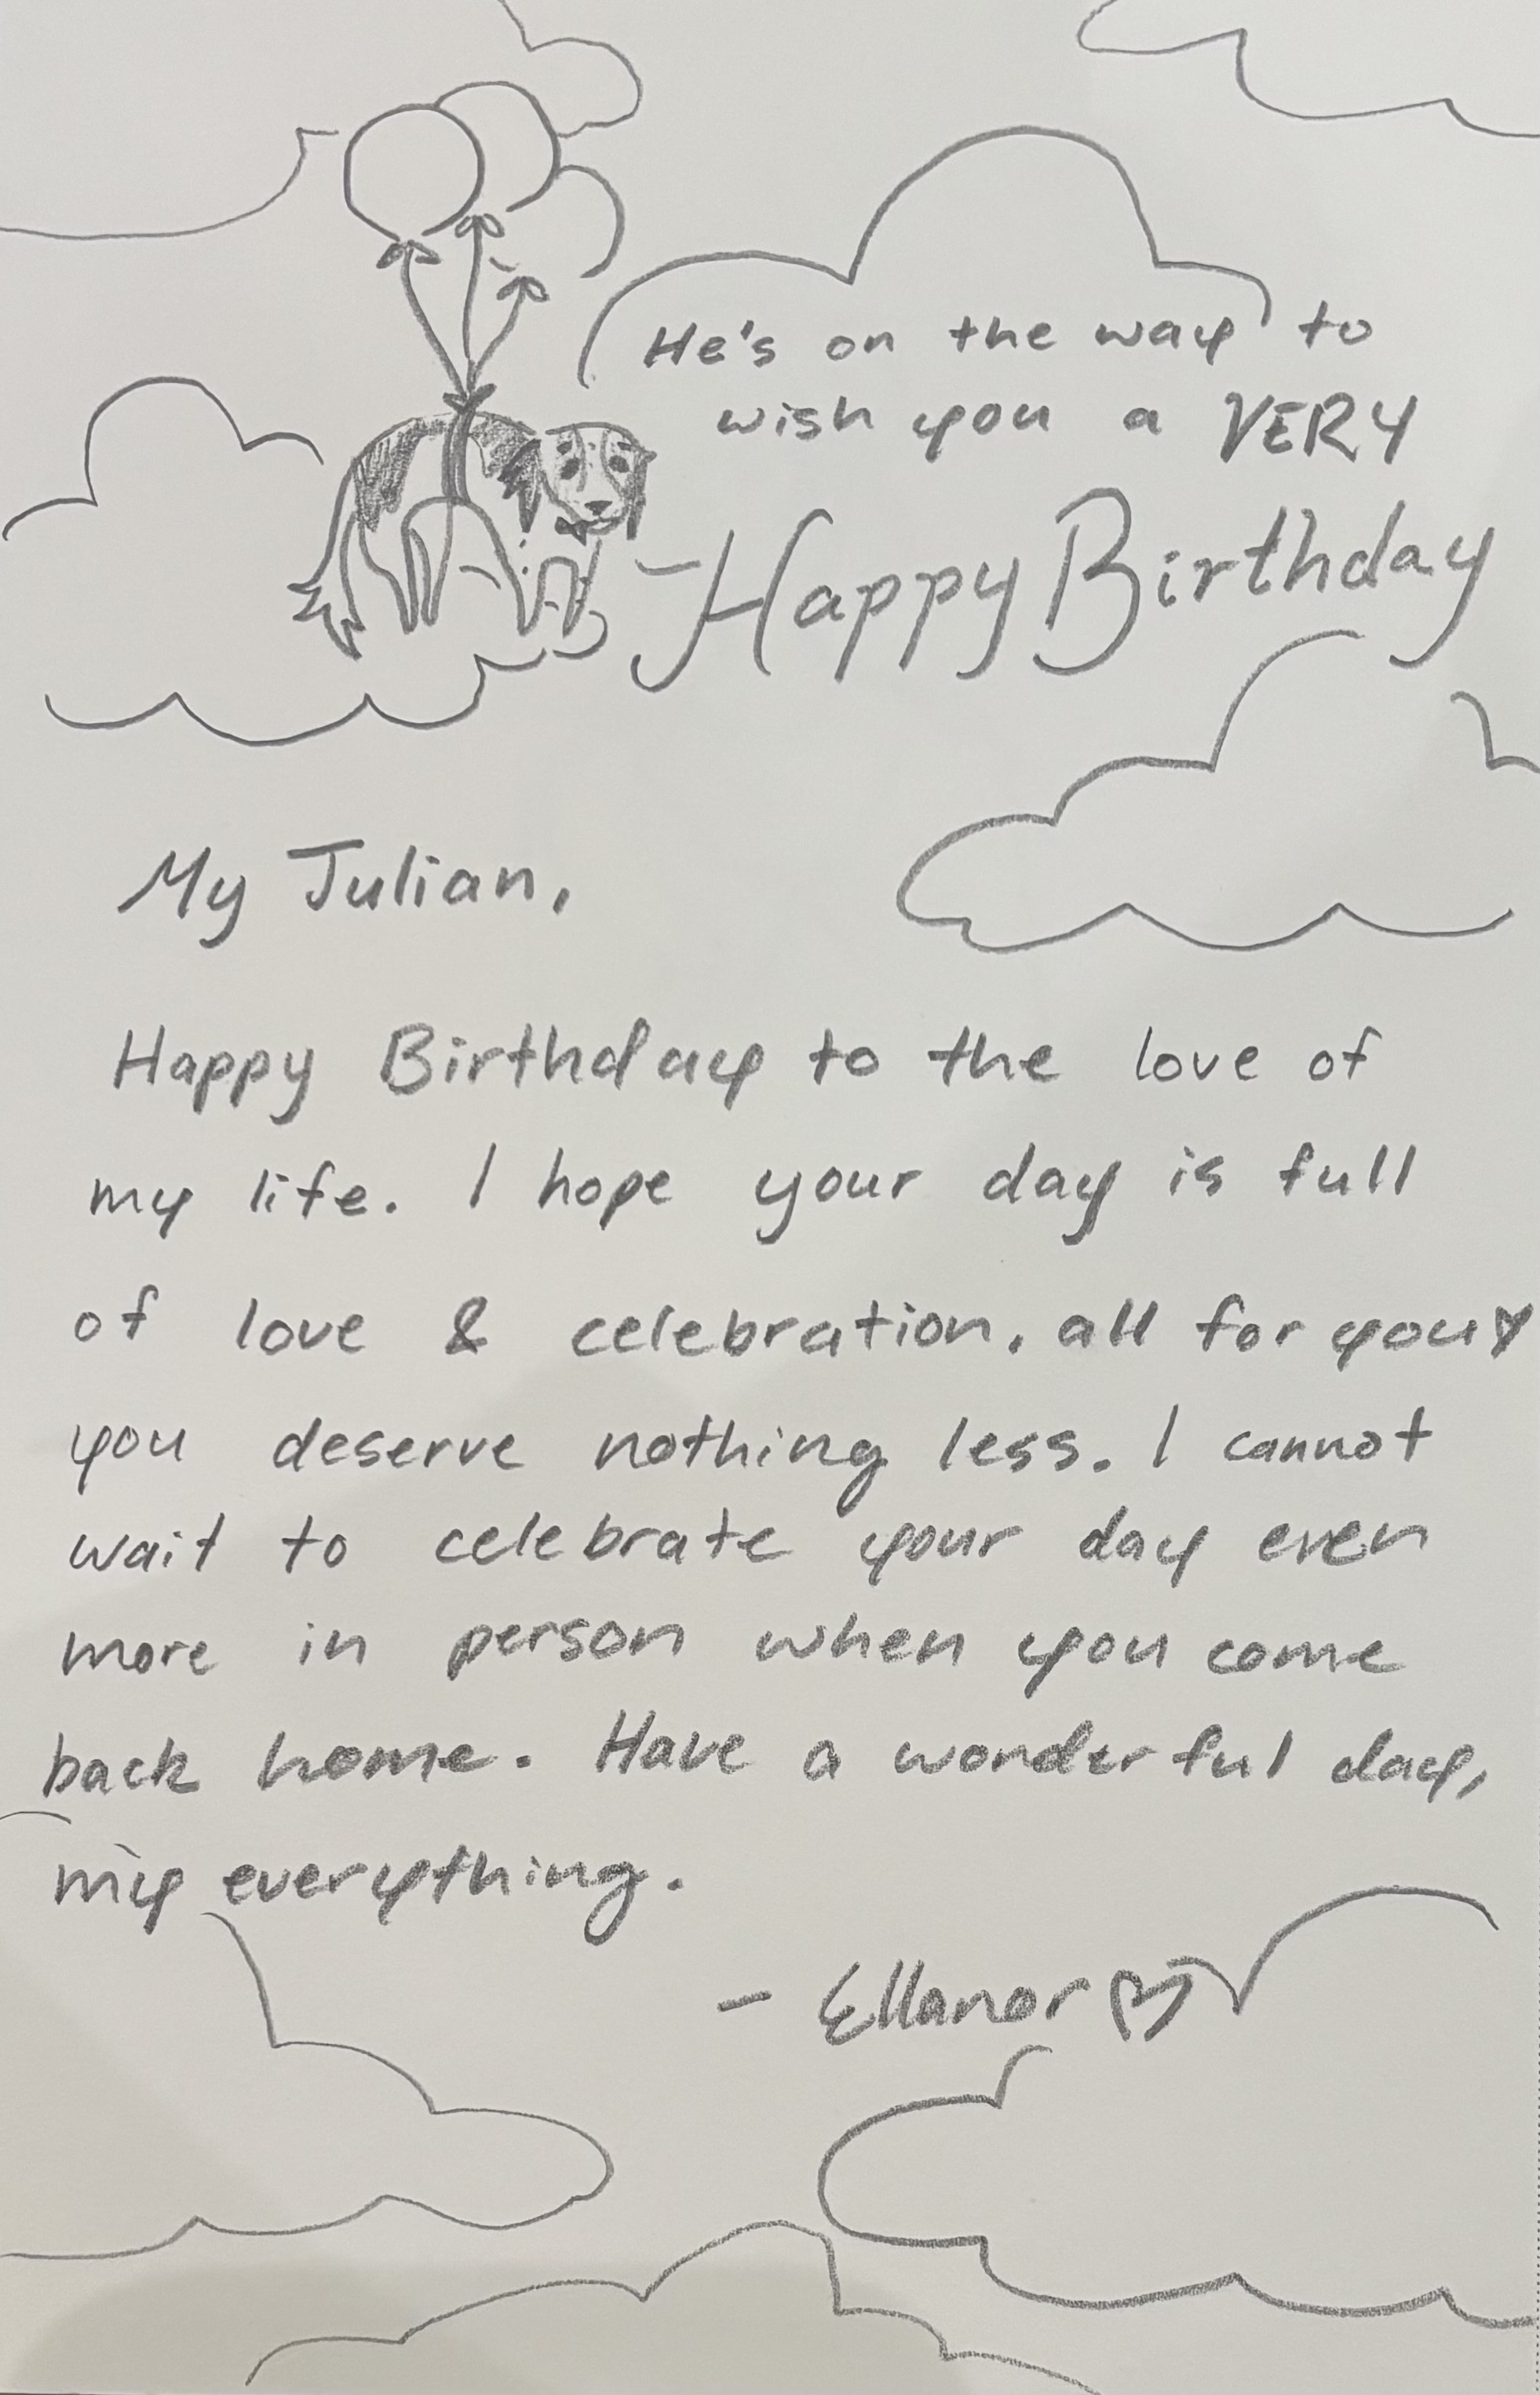 He's on the way to
wish you a VERY
Happy Birthday
My Julian,
Happy Birthday to the love of
my life. I hope your day is full
of love & celebration, all for you♡
you deserve nothing less. I cannot
wait to celebrate your day even
more in person when you come
back home. Have a wonderful day,
my everything.
- Ellanor ♡